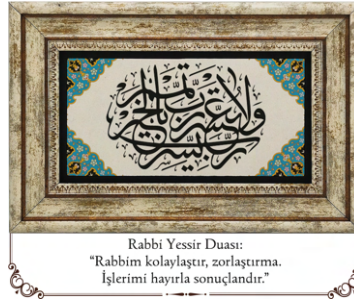 رب يسر ولا تعسر رب تمم بالخير
Rabbi Yessir Duası:
“Rabbim kolaylaştır, zorlaştırma.
İşlerimi hayırla sonuçlandır.”